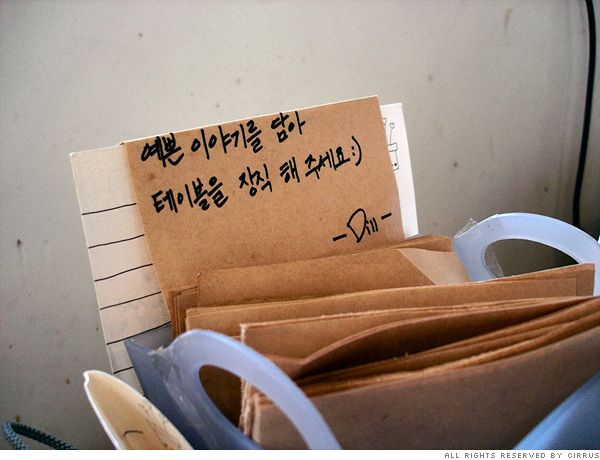 예쁜 이야기를 담아
테이블을 장식 해 주세요:)
-Dill-
ALL RIGHTS RESERVED BY CIRRUS